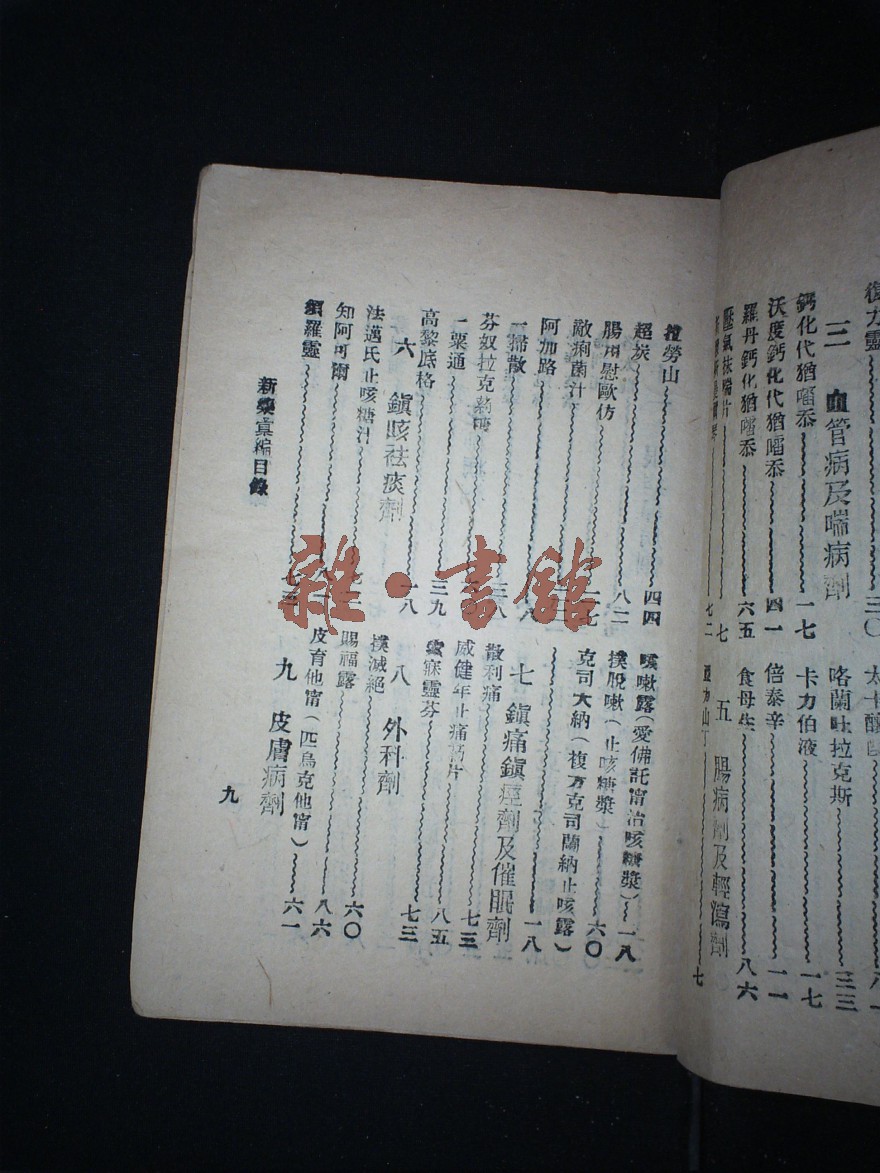 三 血管病及喘病劑
鈣化代猶囓忝 一七
沃度鈣化代猶囓忝 四一
羅丹鈣化猶囓忝 六五
壓氣抹喘片 七
七二
咯蘭吐拉克斯 三三
卡力伯液 一七
倍泰辛 一一
食母生 八六
五 腸病劑及輕瀉劑
七
勞山 四四
超炭 八二
腸用慰歐仿
敵痢菌汁
阿加路
一掃散 八
芬奴拉克
一粟通 三九
高黎底格 一八
六 鎮咳祛痰劑
法邁氏止咳糖汁
知阿可爾
須羅靈
咳嗽露(愛佛託甯治咳糖漿) 一八
撲脫嗽(止咳糖漿) 六〇
克司大納(複方克司蘭納止咳露)
一八
七 鎮痛鎮痙劑及催眠劑
散利痛 七三
威健年止痛藥片 八五
寐靈芬 七三
八 外科劑
撲滅絕 六〇
賜福露 八六
皮育他甯(匹烏克他甯) 六一
九 皮膚病劑
新藥彙編目錄
九
雜·書館